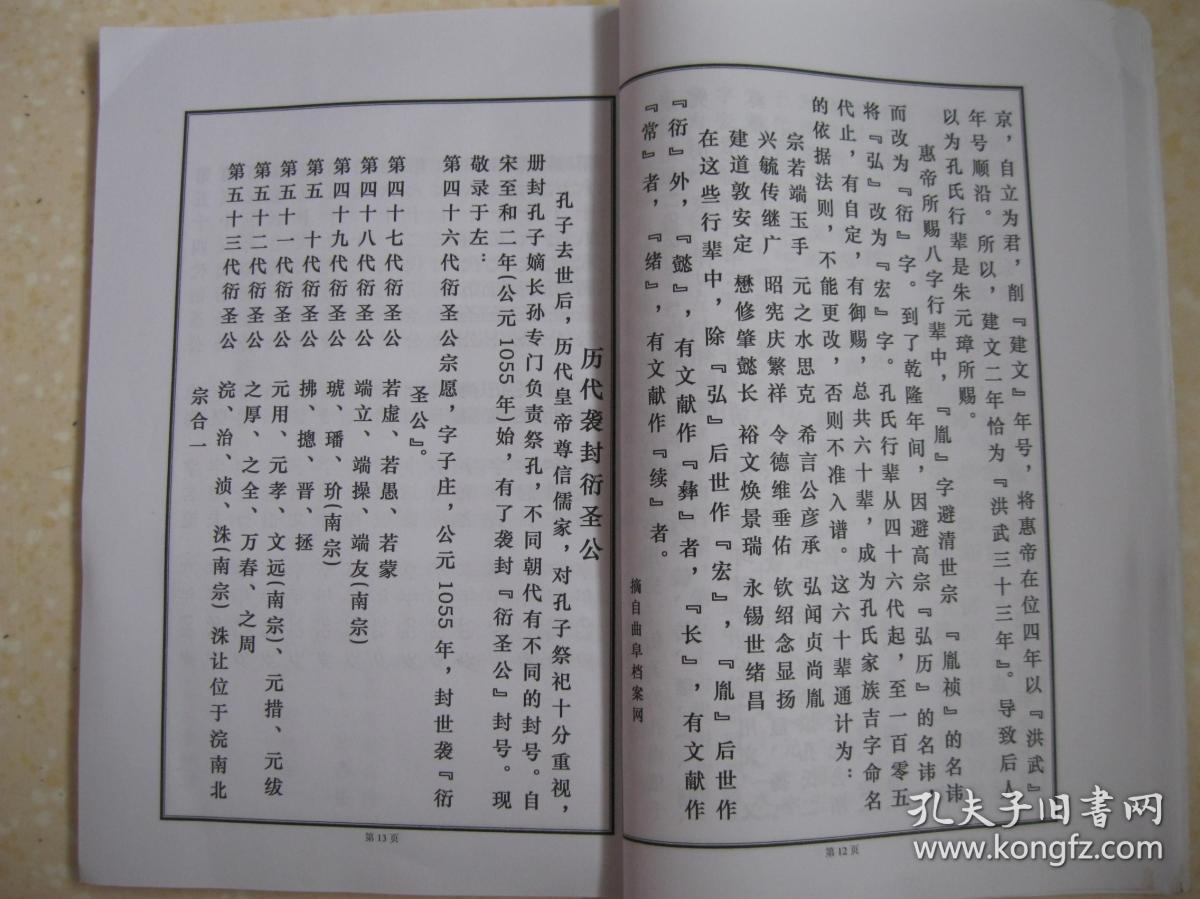 京，自立为君，削『建文』年号，将惠帝在位四年以『洪武』
年号顺沿。所以，建文二年恰为『洪武三十三年』。导致后人
以为孔氏行辈是朱元璋所赐。
惠帝所赐八字行辈中，『胤』字避清世宗『胤祯』的名讳
而改为『衍』字。到了乾隆年间，因避高宗『弘历』的名讳，
将『弘』改为『宏』字。孔氏行辈从四十六代起，至一百零五
代止，有自定，有御赐，总共六十辈，成为孔氏家族吉字命名
的依据法则，不能更改，否则不准入谱。这六十辈通计为：
宗若端玉手 元之水思克 希言公彦承 弘闻贞尚胤
兴毓传继广 昭宪庆繁祥 令德维垂佑 钦绍念显扬
建道敦安定 懋修肇懿长 裕文焕景瑞 永锡世绪昌
在这些行辈中，除『弘』后世作『宏』，『胤』后世作
『衍』外，『懿』，有文献作『彝』者，『长』，有文献作
『常』者，『绪』，有文献作『续』者。
摘自曲阜档案网
第12页
历代袭封衍圣公
孔子去世后，历代皇帝尊信儒家，对孔子祭祀十分重视，
册封孔子嫡长孙专门负责祭孔，不同朝代有不同的封号。自
宋至和二年(公元1055年)始，有了袭封『衍圣公』封号。现
敬录于左：
第四十六代衍圣公宗愿，字子庄，公元1055年，封世袭『衍
圣公』。
第四十七代衍圣公 若虚、若愚、若蒙
第四十八代衍圣公 端立、端操、端友(南宗)
第四十九代衍圣公 琥、璠、玠(南宗)
第五十代衍圣公 拂、摠、晋、拯
第五十一代衍圣公 元用、元孝、文远(南宗)、元措、元绂
第五十二代衍圣公 之厚、之全、万春、之周
第五十三代衍圣公 浣、治、浈、洙(南宗) 洙让位于浣南北
宗合一
第13页
孔夫子旧书网
www.kongfz.com